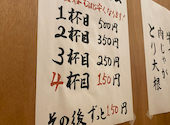 1杯目 500円
2杯目 350円
3杯目 250円
4杯目 150円
その後ずっと150円
肉じゃが
とり大根